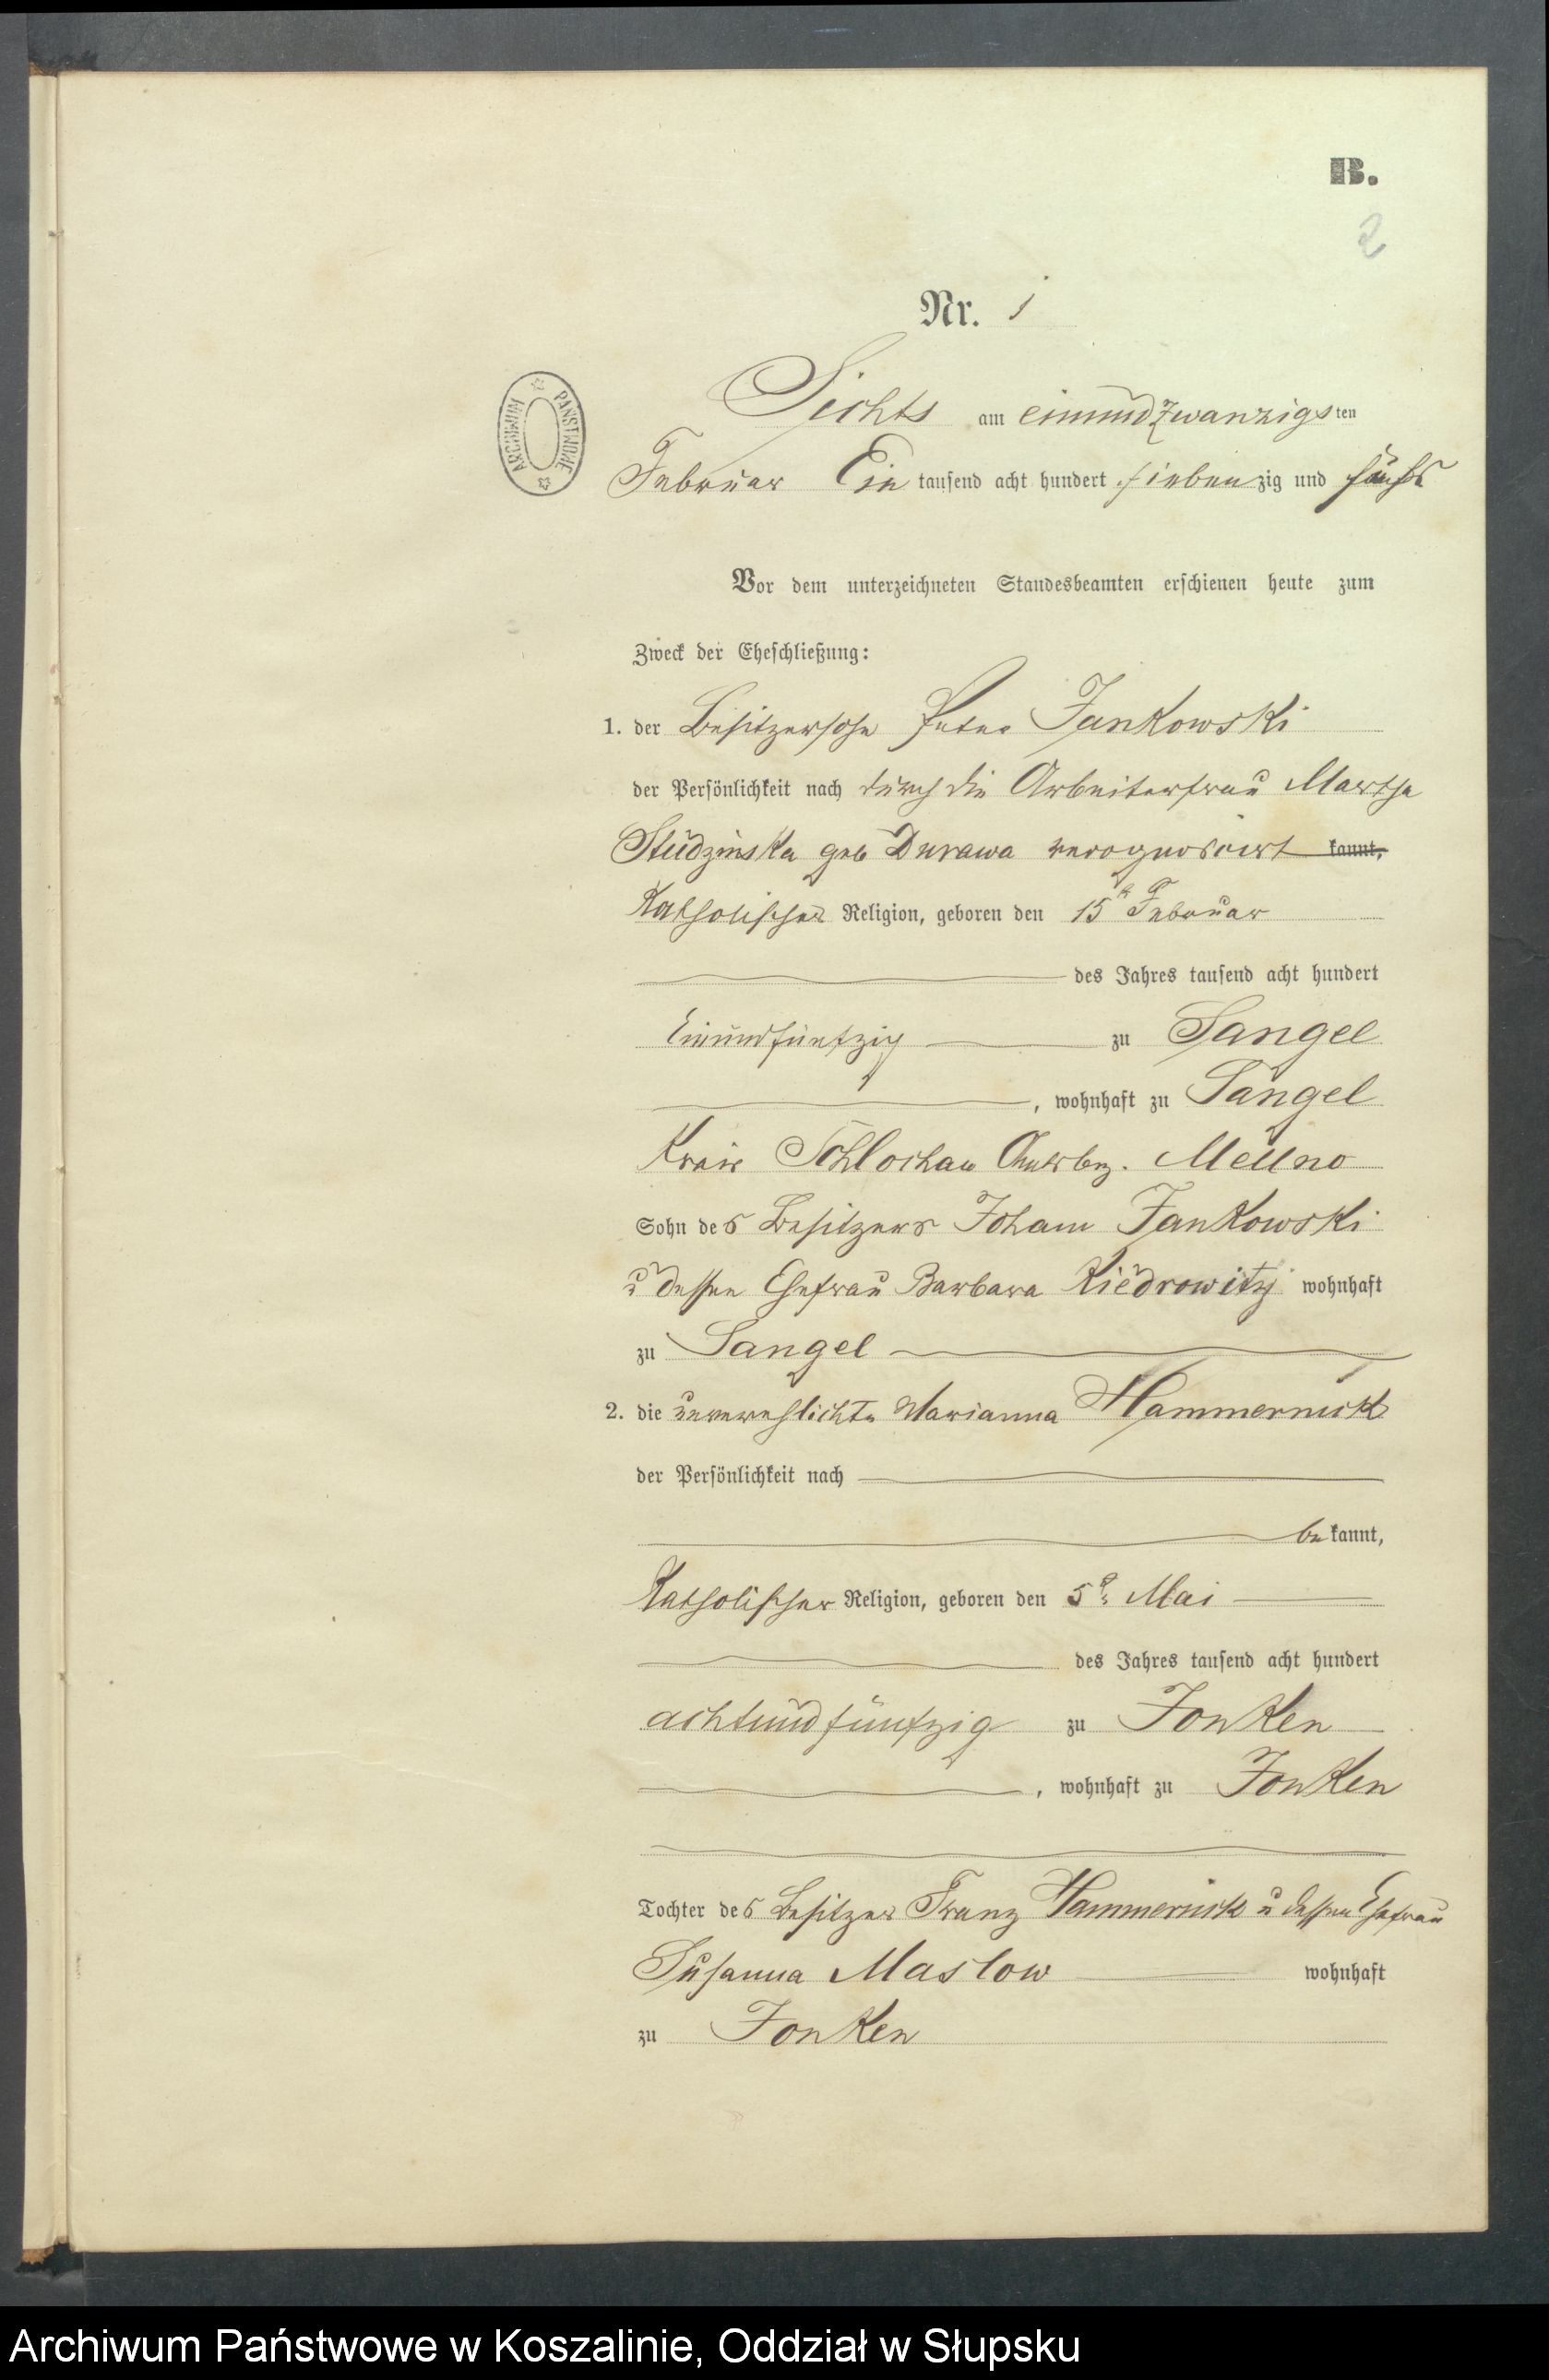 B.
2
Nr. 1
ARCHIWUM PAŃSTWOWE
am einundzwanzigsten
Februar Ein tausend acht hundert siebenzig und sechs
Vor dem unterzeichneten Standesbeamten erschienen heute zum
Zweck der Eheschließung:
1. der Besitzersohn Peter Jankowski
der Persönlichkeit nach durch die Arbeiterfrau Martha
Studzinska geb Durawa recognoscirt kannt,
Katholischer Religion, geboren den 15t Februar
des Jahres tausend acht hundert
Einundfünfzig zu Sangel
, wohnhaft zu Sangel
Kreis Schlochau Amtsbez. Mellno
Sohn des Besitzers Johann Jankowski
u dessen Ehefrau Barbara Kiedrowitz wohnhaft
zu Sangel
2. die unverehlichte Marianna Hammernick
der Persönlichkeit nach
bekannt,
Katholischer Religion, geboren den 5t Mai
des Jahres tausend acht hundert
achtundfünfzig zu Jonken
, wohnhaft zu Jonken
Tochter des Besitzer Franz Hammernick u dessen Ehefrau
Susanna Maslow wohnhaft
zu Jonken
Archiwum Państwowe w Koszalinie, Oddział w Słupsku